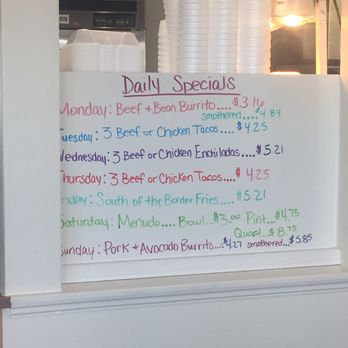 Daily Specials
Monday: Beef + Bean Burrito....$3.16
smothered...$4.84
Tuesday: 3 Beef or Chicken Tacos....$4.25
Wednesday: 3 Beef or Chicken Enchiladas...$5.21
Thursday: 3 Beef or Chicken Tacos....$4.25
Friday: South of the Border Fries....$5.21
Saturday: Menudo.... Bowl...$3.00 Pint...$4.75
Quart...$8.75
Sunday: Pork + Avocado Burrito...$4.27 smothered...$5.85